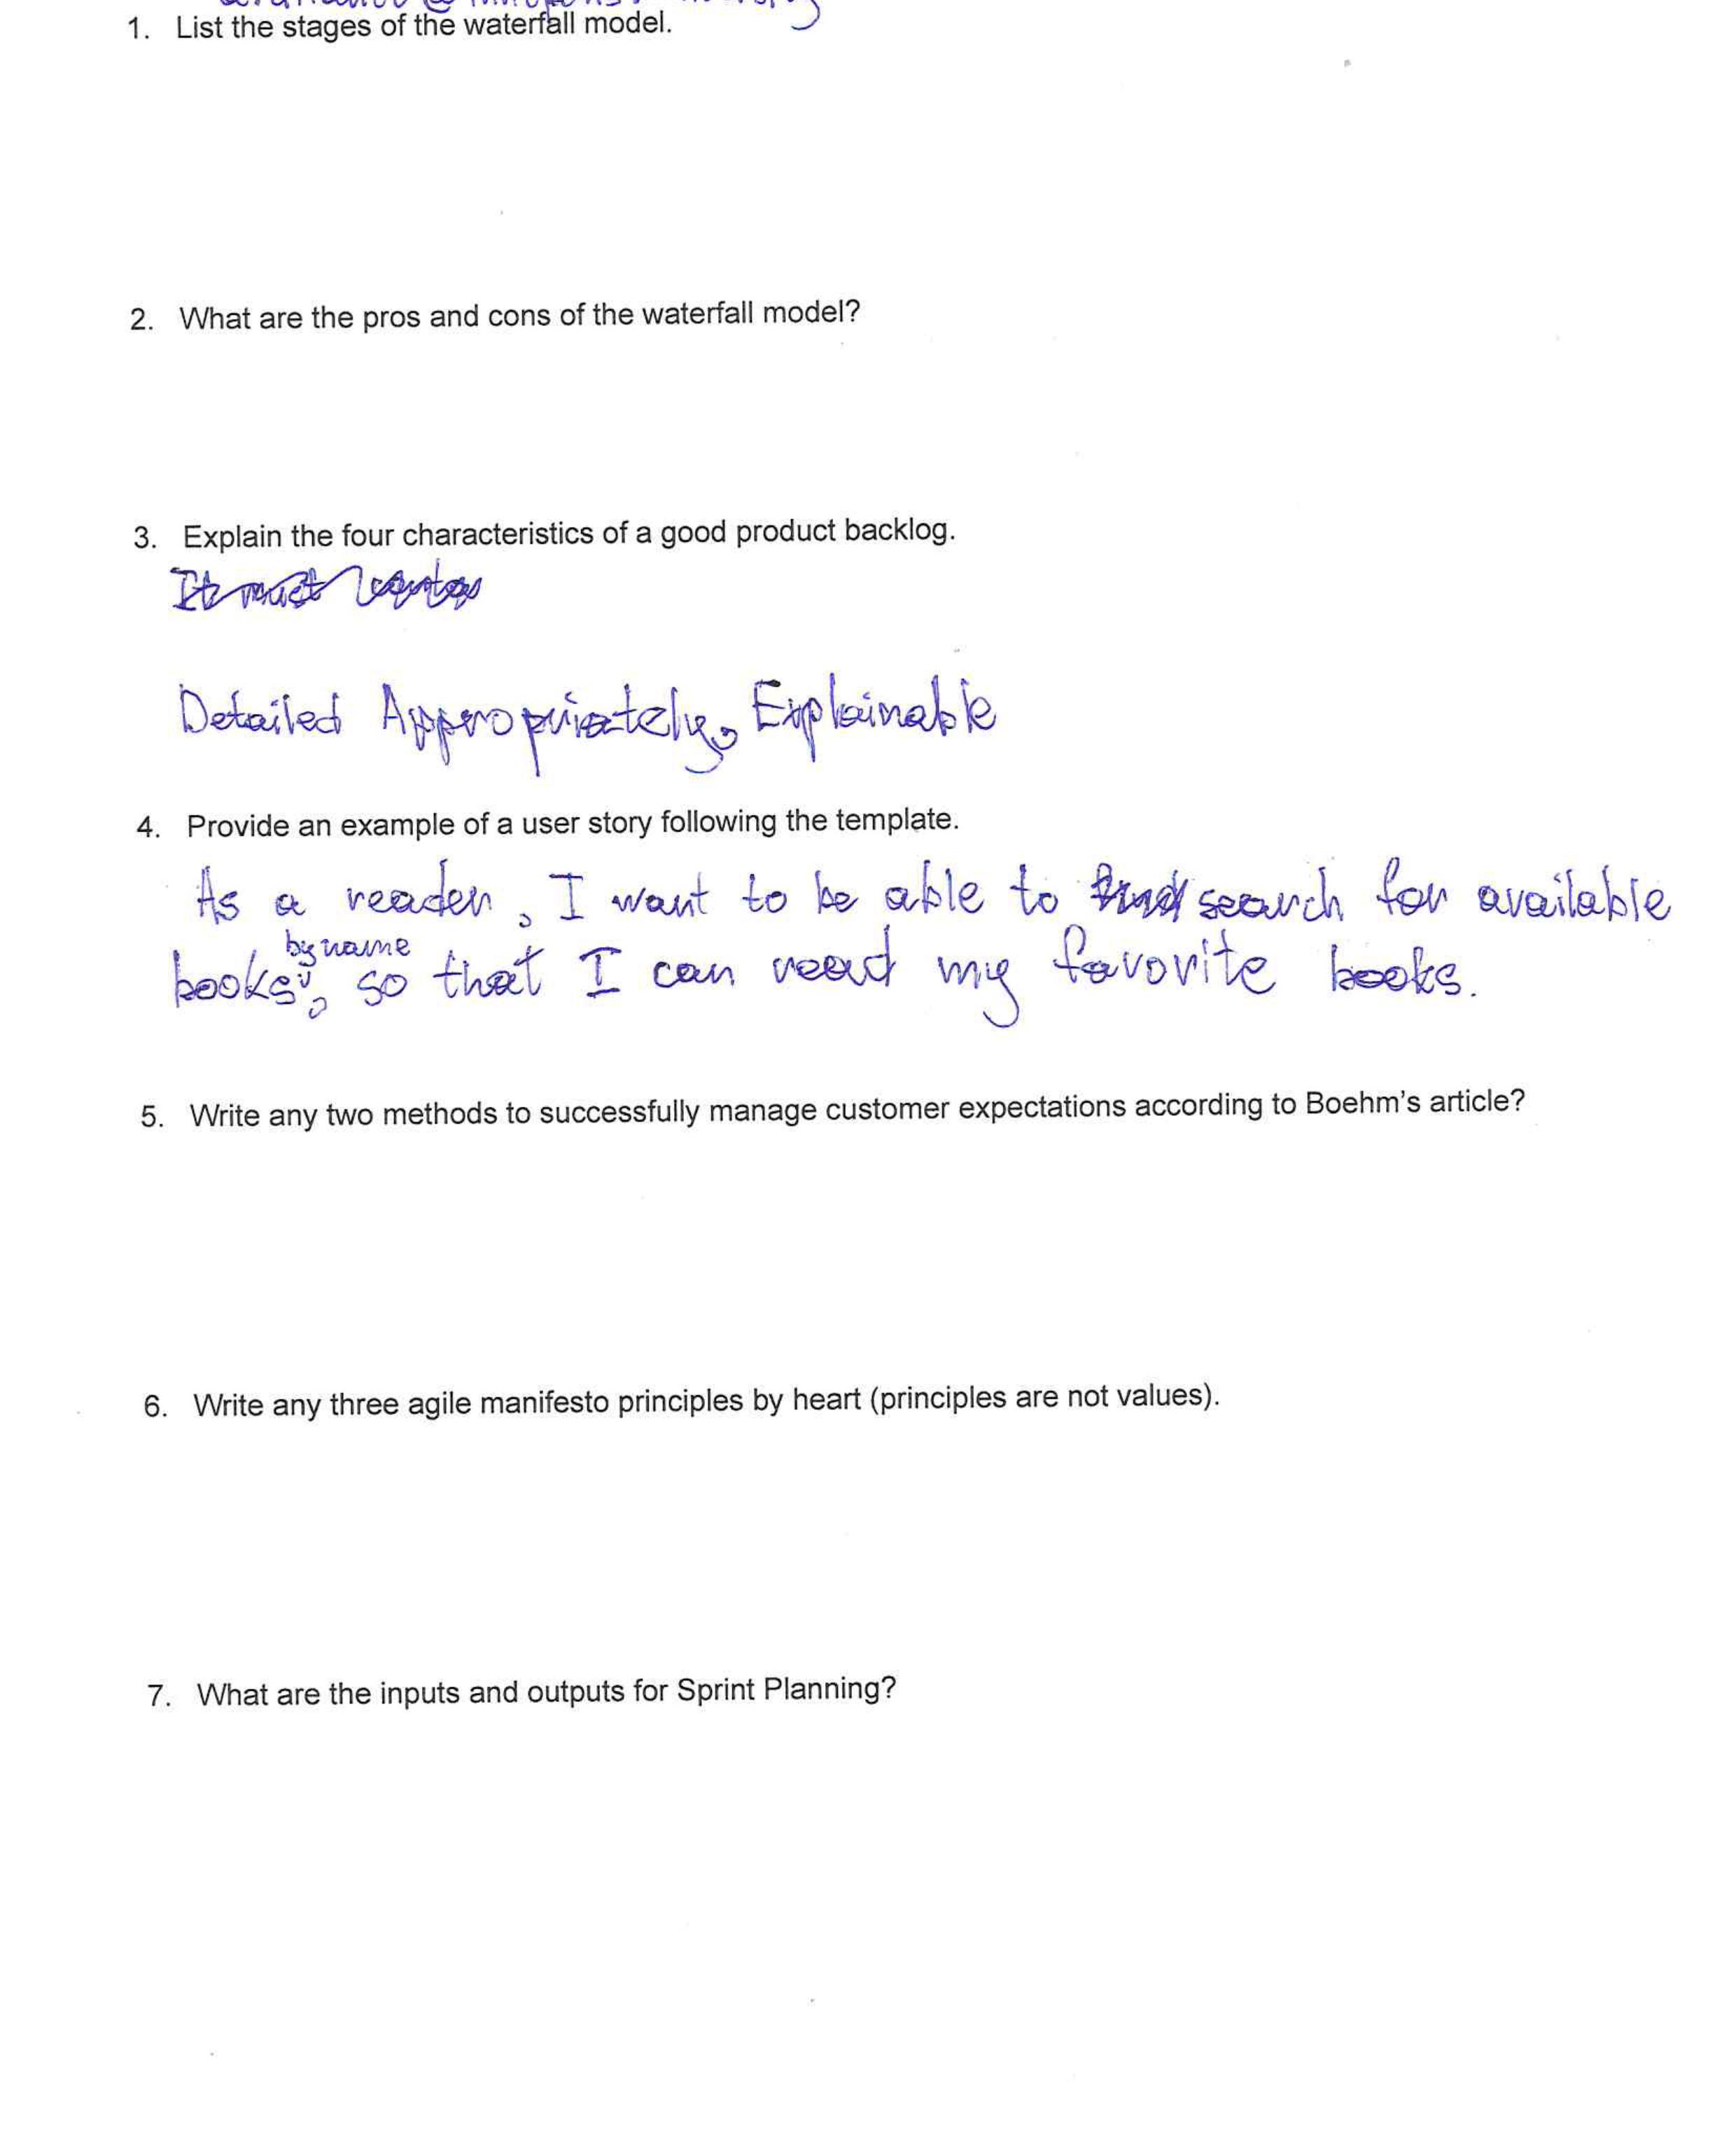 1. List the stages of the waterfall model.
2. What are the pros and cons of the waterfall model?
3. Explain the four characteristics of a good product backlog.
It must
Detailed Appropriately, Explainable
4. Provide an example of a user story following the template.
As a reader, I want to be able to find search for available
by name
books, so that I can read my favorite books.
5. Write any two methods to successfully manage customer expectations according to Boehm's article?
6. Write any three agile manifesto principles by heart (principles are not values).
7. What are the inputs and outputs for Sprint Planning?